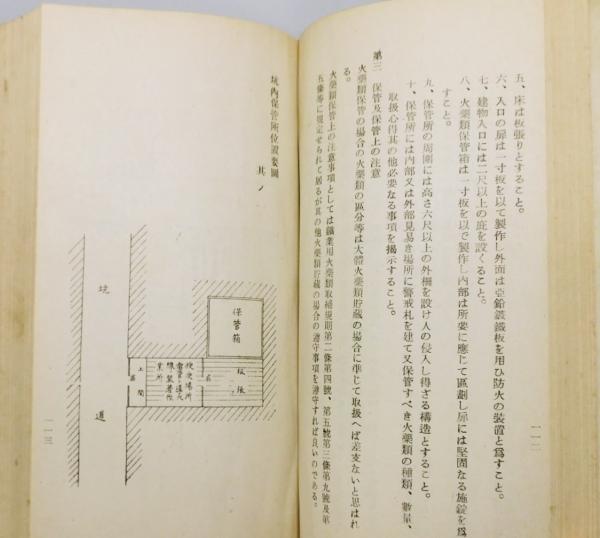 五、床は板張りとすること。
六、入口の扉は一寸板を以て製作し外面は亞鉛鍍鐵板を用ひ防火の裝置と爲すこと。
七、建物入口には二尺以上の庇を設くること。
八、火藥類保管箱は一寸板を以て製作し内部は所要に應じて區劃し扉には堅固なる施錠を爲
すこと。
九、保管所の周圍には高さ六尺以上の外柵を設け人の侵入し得ざる構造とすること。
十、保管所には内部又は外部見易き場所に警戒札を建て又保管すべき火藥類の種類、數量、
取扱心得其の他必要なる事項を揭示すること。
第三 保管及保管上の注意
火藥類保管の場合の火藥類の區分等は大體火藥類貯藏の場合に準じて取扱へば差支ないと思はれ
る。
火藥類保管上の注意事項としては鑛業用火藥類取締規則第二條第四號、第五號第三條第九號及第
五條等に規定せられて居るが其の他火藥類貯藏の場合の遵守事項を遵守すれば良いのである。
一一二
坑内保管所位置要圖
其ノ
坑道
保管箱
板床
授受場所
土間
一一三